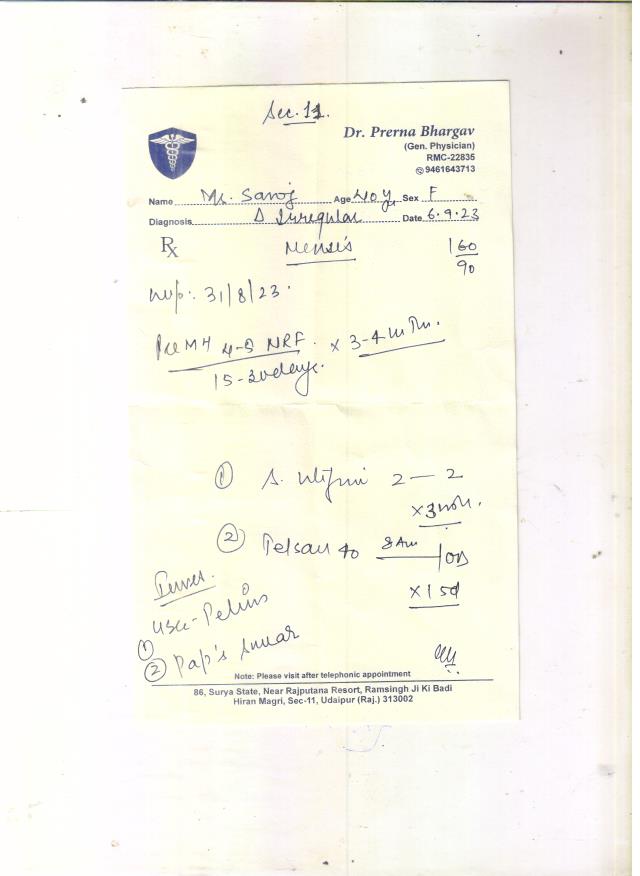 Sec. 11.
Dr. Prerna Bhargav
(Gen. Physician)
RMC-22835
9461643713
Name Mrs. Saroj Age 40 y Sex F
Diagnosis Δ Irregular Date 6.9.23
Rx Mensis 160/90
LMP: 31/8/23.
4-5 × 3-4
15-30 days.
① S. 2 — 2
× 3
② Telsar 40 8 Am OD
× 15d
USG-Pelvis
①
② Pap's Smear
Note: Please visit after telephonic appointment
86, Surya State, Near Rajputana Resort, Ramsingh Ji Ki Badi
Hiran Magri, Sec-11, Udaipur (Raj.) 313002